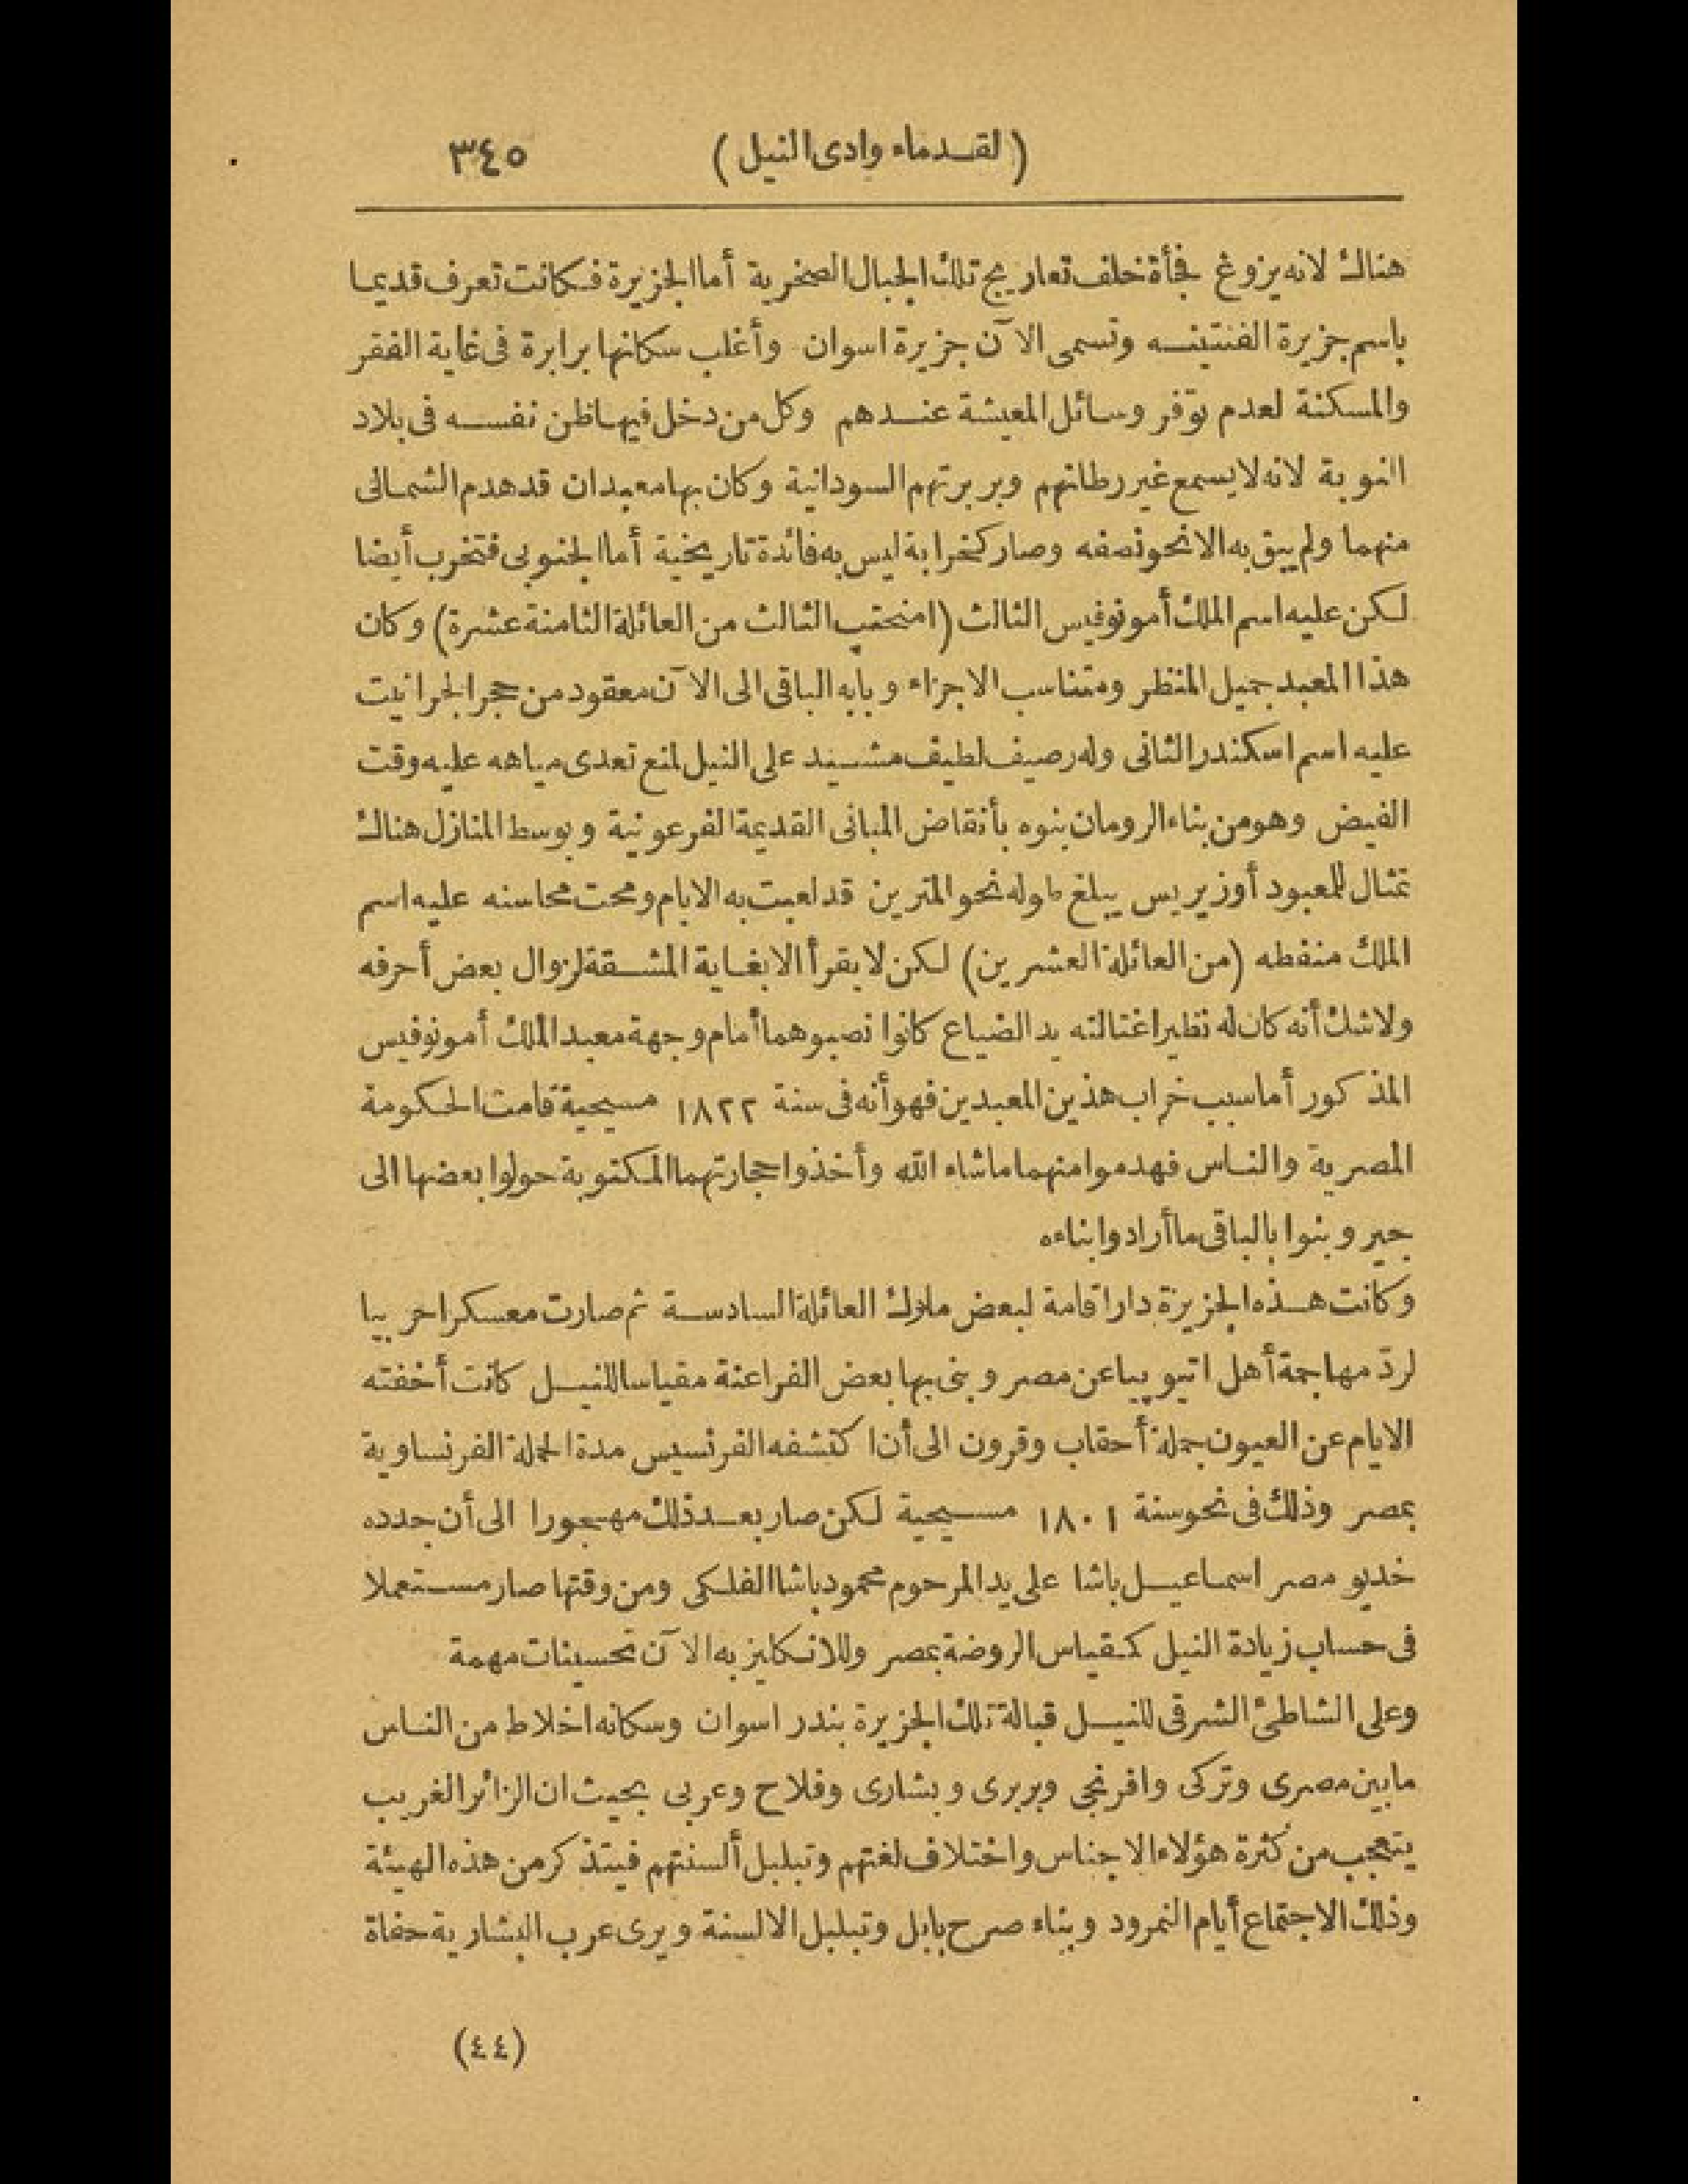 (لقدماء وادى النيل) ٣٤٥
هناك لانه يزوغ فجأة خلف تعاريج تلك الجبال الصخرية أما الجزيرة فكانت تعرف قديما
باسم جزيرة الفنتينه وتسمى الآن جزيرة اسوان وأغلب سكانها برابرة فى غاية الفقر
والمسكنة لعدم توفر وسائل المعيشة عندهم وكل من دخل فيها ظن نفسه فى بلاد
النوبة لانه لا يسمع غير رطانتهم وبربرتهم السودانية وكان بها معبدان قد هدم الشمالى
منهما ولم يبق به الا نحو نصفه وصار كخرابة ليس به فائدة تاريخية أما الجنوبى فتخرب أيضا
لكن عليه اسم الملك أمونوفيس الثالث (امنحتب الثالث من العائلة الثامنة عشرة) وكان
هذا المعبد جميل المنظر ومتناسب الاجزاء وبابه الباقى الى الآن معقود من حجر الجرانيت
عليه اسم اسكندر الثانى وله رصيف لطيف مشيد على النيل لمنع تعدى مياهه عليه وقت
الفيض وهو من بناء الرومان بنوه بأنقاض المبانى القديمة الفرعونية وبوسط المنازل هناك
تمثال للمعبود أوزيريس يبلغ طوله نحو المترين قد لعبت به الايام ومحت محاسنه عليه اسم
الملك منفطه (من العائلة العشرين) لكن لا يقرأ الا بغاية المشقة لزوال بعض أحرفه
ولا شك أنه كان له نظير اغتالته يد الضياع كانوا نصبوهما أمام وجهة معبد الملك أمونوفيس
المذكور أما سبب خراب هذين المعبدين فهو أنه فى سنة ١٨٢٢ مسيحية قامت الحكومة
المصرية والناس فهدموا منهما ما شاء الله وأخذوا حجارتهما المكتوبة حولوا بعضها الى
جير وبنوا بالباقى ما أرادوا بناءه
وكانت هذه الجزيرة دار اقامة لبعض ملوك العائلة السادسة ثم صارت معسكرا حربيا
لردّ مهاجمة أهل اتيوبيا عن مصر وبنى بها بعض الفراعنة مقياسا للنيل كانت أخفته
الايام عن العيون جملة أحقاب وقرون الى أن اكتشفه الفرنسيس مدة الحملة الفرنساوية
بمصر وذلك فى نحو سنة ١٨٠١ مسيحية لكن صار بعد ذلك مهجورا الى أن جدده
خديو مصر اسماعيل باشا على يد المرحوم محمود باشا الفلكى ومن وقتها صار مستعملا
فى حساب زيادة النيل كمقياس الروضة بمصر وللانكليز به الآن تحسينات مهمة
وعلى الشاطئ الشرقى للنيل قبالة تلك الجزيرة بندر اسوان وسكانه اخلاط من الناس
ما بين مصرى وتركى وافرنجى وبربرى وبشارى وفلاح وعربى بحيث ان الزائر الغريب
يتعجب من كثرة هؤلاء الاجناس واختلاف لغتهم وتبلبل ألسنتهم فيتذكر من هذه الهيئة
وذلك الاجتماع أيام النمرود وبناء صرح بابل وتبلبل الالسنة ويرى عرب البشارية حفاة
(٤٤)